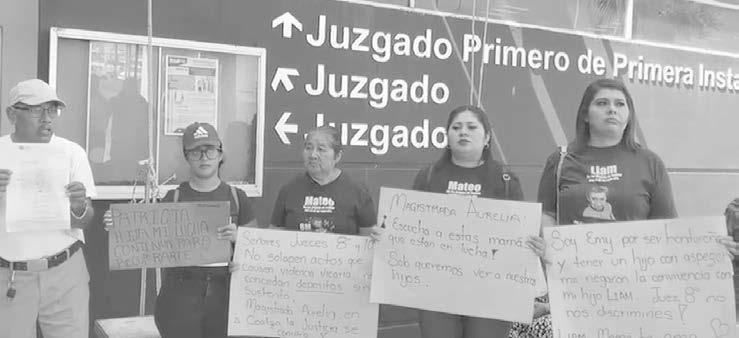 Juzgado Primero de Primera Insta
Juzgado
Juzgado
PATRICIA
HIJA MI LUCHA
CONTINUA PARA
RECUPERARTE
Señores Jueces 8° y
No solapen actos que
causen violencia vicaria, ni
concedan depositos sin
sustento.
Magistrada Aurelia, en
Coatza la Justicia se
Mateo
MAGISTRADA AURELIA:
Escucha a estas mamá
que estan en lucha!
Solo queremos ver a nuestros
hijos.
Mateo
Liam
Soy Emy por ser hondureña
y tener un hijo con asperger
me negaron la convivencia con
mi hijo LIAM. Juez 8° no
nos discrimines!
LIAM Mamá te ama